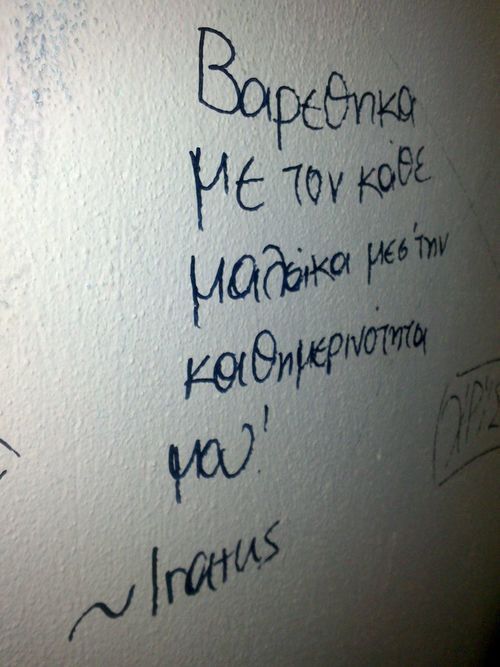 Βαρεθηκα
με τον κάθε
μαλάκα μεσ' την
καθημερινότητα
μου!
~ Iratus